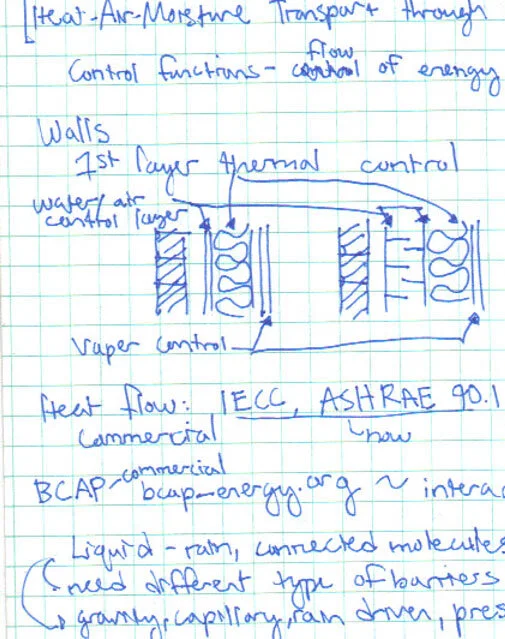 Heat-Air-Moisture Transport through
Control functions - flow control of energy
Walls
1st layer thermal control
water/air
control layer
Vaper control
Heat flow: IECC, ASHRAE 90.1
Commercial
now
BCAP - commercial
bcap-energy.org ~ interac
Liquid - rain, connected molecules
need different type of barriers
gravity, capillary, rain driver, pres